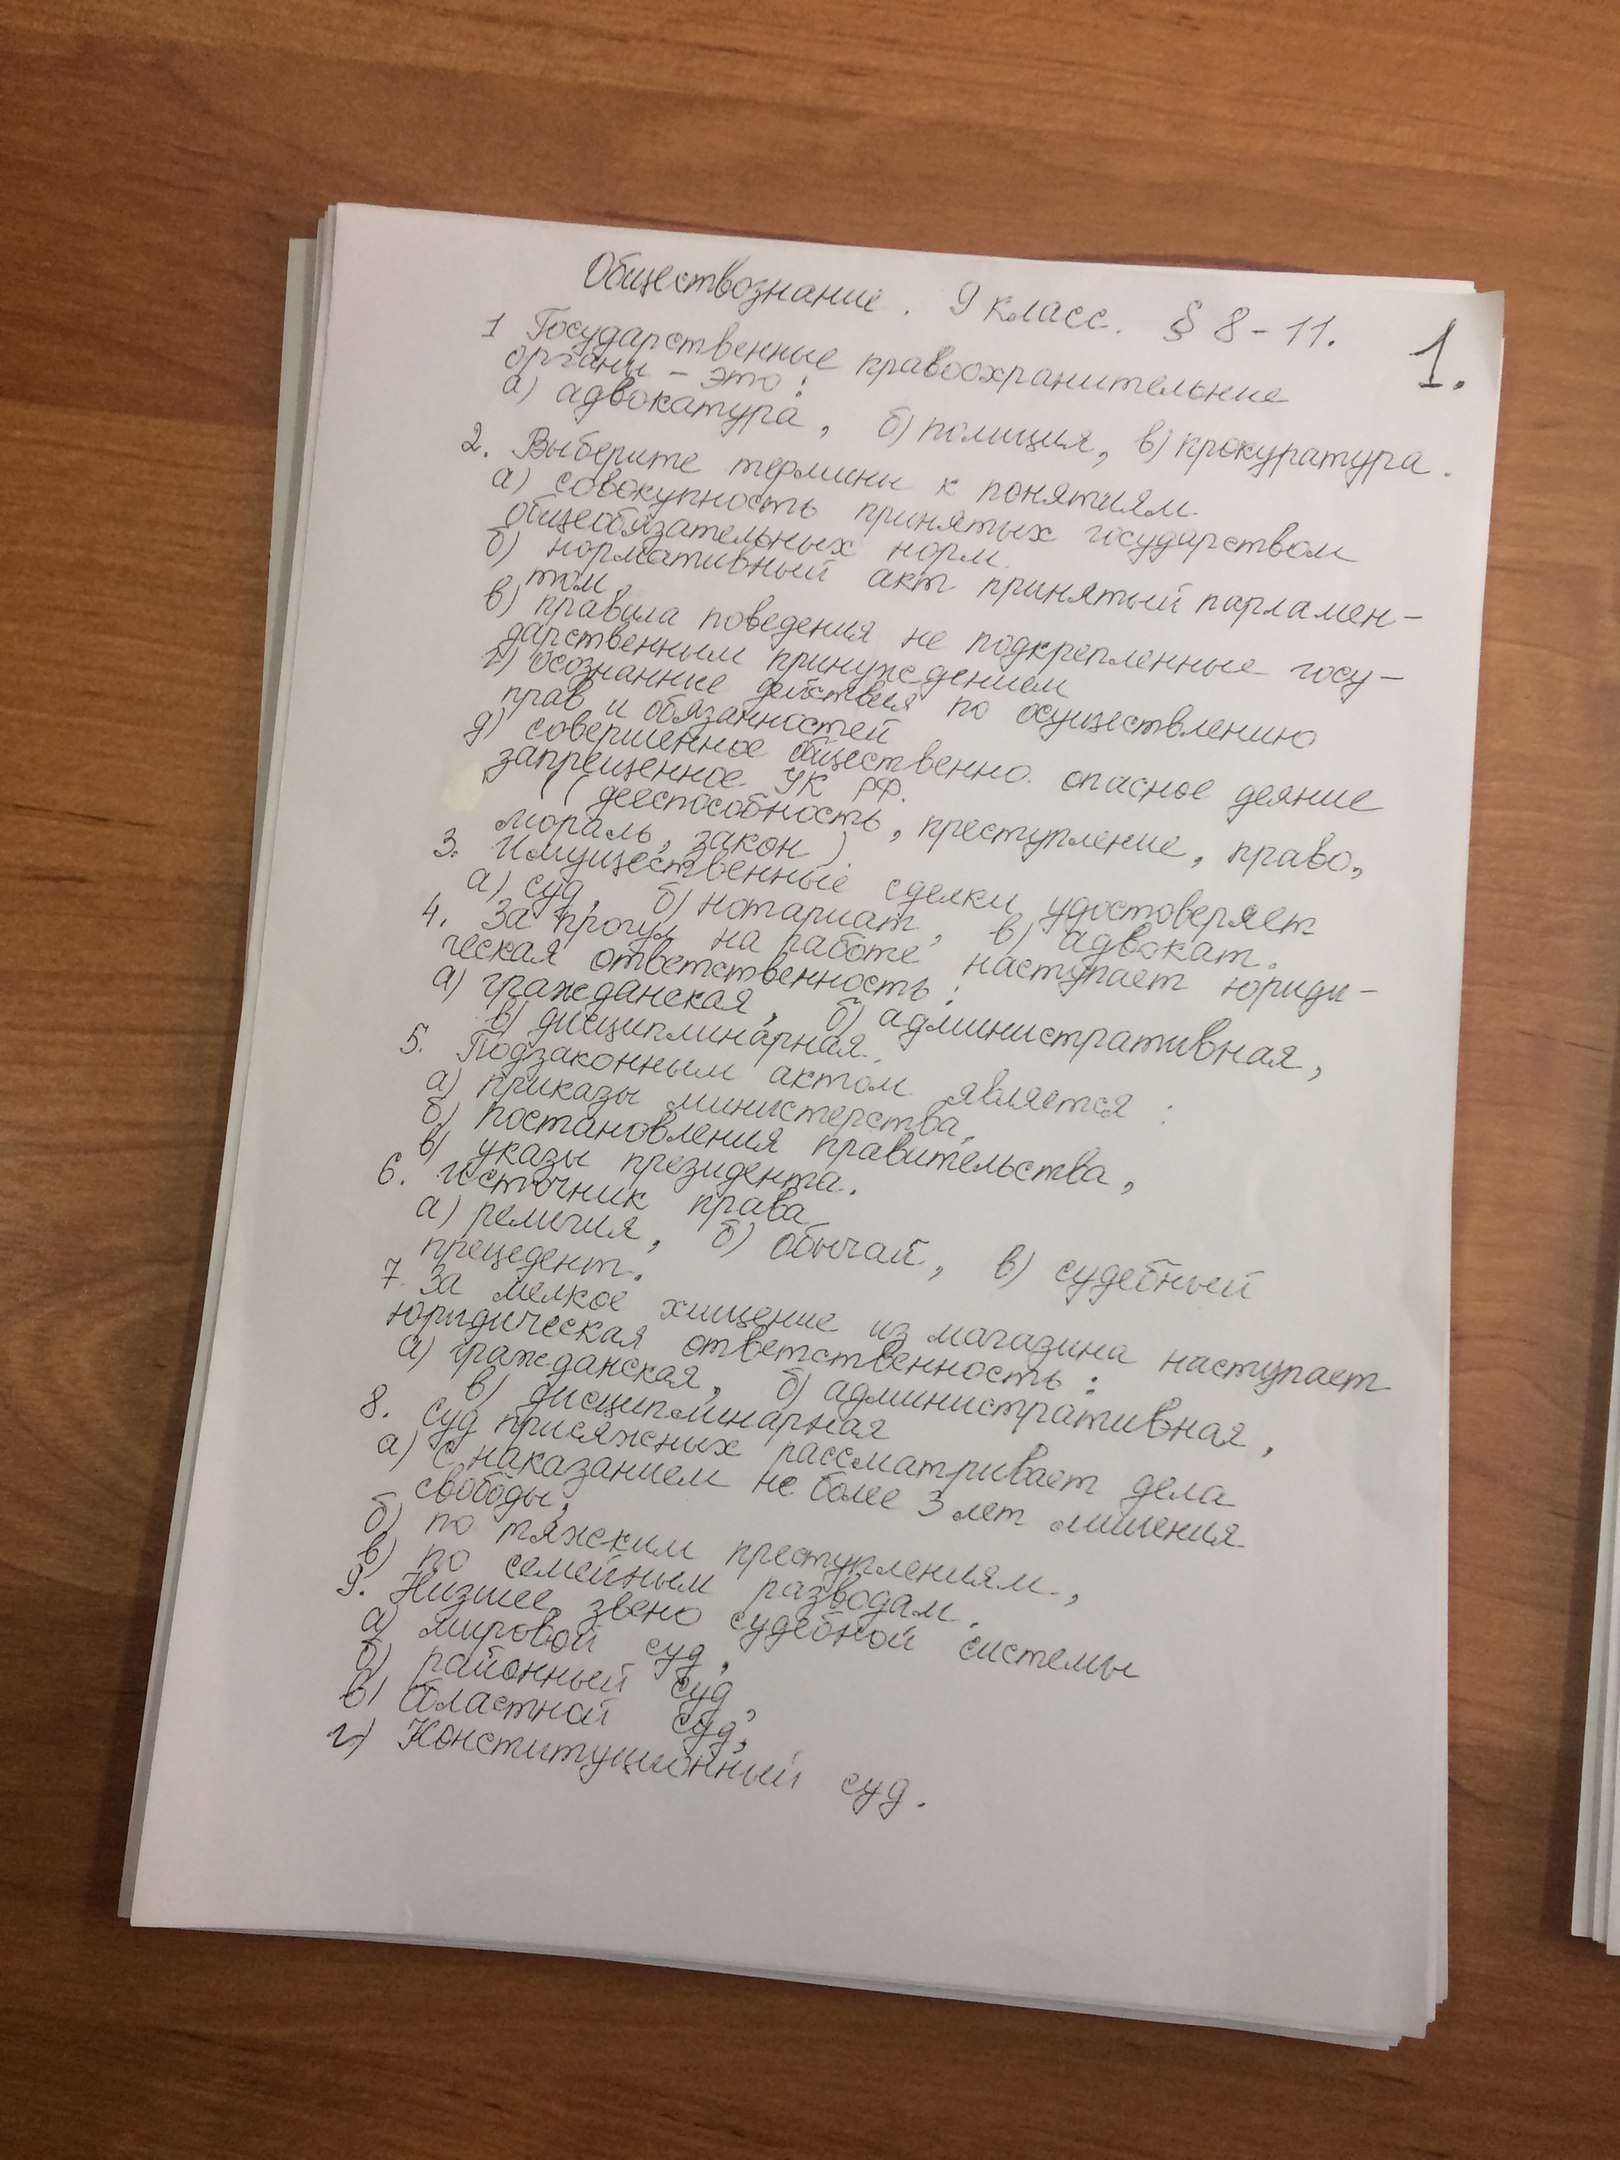 Обществознание. 9 класс. § 8-11.
1.
1 Государственные правоохранительные
органы - это:
а) адвокатура, б) полиция, в) прокуратура.
2. Выберите термины к понятиям.
а) совокупность принятых государством
общеобязательных норм.
б) нормативный акт принятый парламен-
том,
в) правила поведения не подкрепленные госу-
дарственным принуждением
г) осознанные действия по осуществлению
прав и обязанностей
д) совершенное общественно опасное деяние
запрещенное УК РФ.
(дееспособность, преступление, право,
мораль, закон).
3. Имущественные сделки удостоверяет
а) суд, б) нотариат, в) адвокат.
4. За прогул на работе наступает юриди-
ческая ответственность:
а) гражданская, б) административная,
в) дисциплинарная.
5. Подзаконным актом является:
а) приказы министерства,
б) постановления правительства,
в) указы президента.
6. Источник права
а) религия, б) обычай, в) судебный
прецедент.
7. За мелкое хищение из магазина наступает
юридическая ответственность:
а) гражданская, б) административная,
в) дисциплинарная
8. Суд присяжных рассматривает дела
а) с наказанием не более 3 лет лишения
свободы,
б) по тяжским преступлениям,
в) по семейным разводам.
9. Низшее звено судебной системы
а) мировой суд,
б) районный суд,
в) областной суд,
г) Конституционный суд.